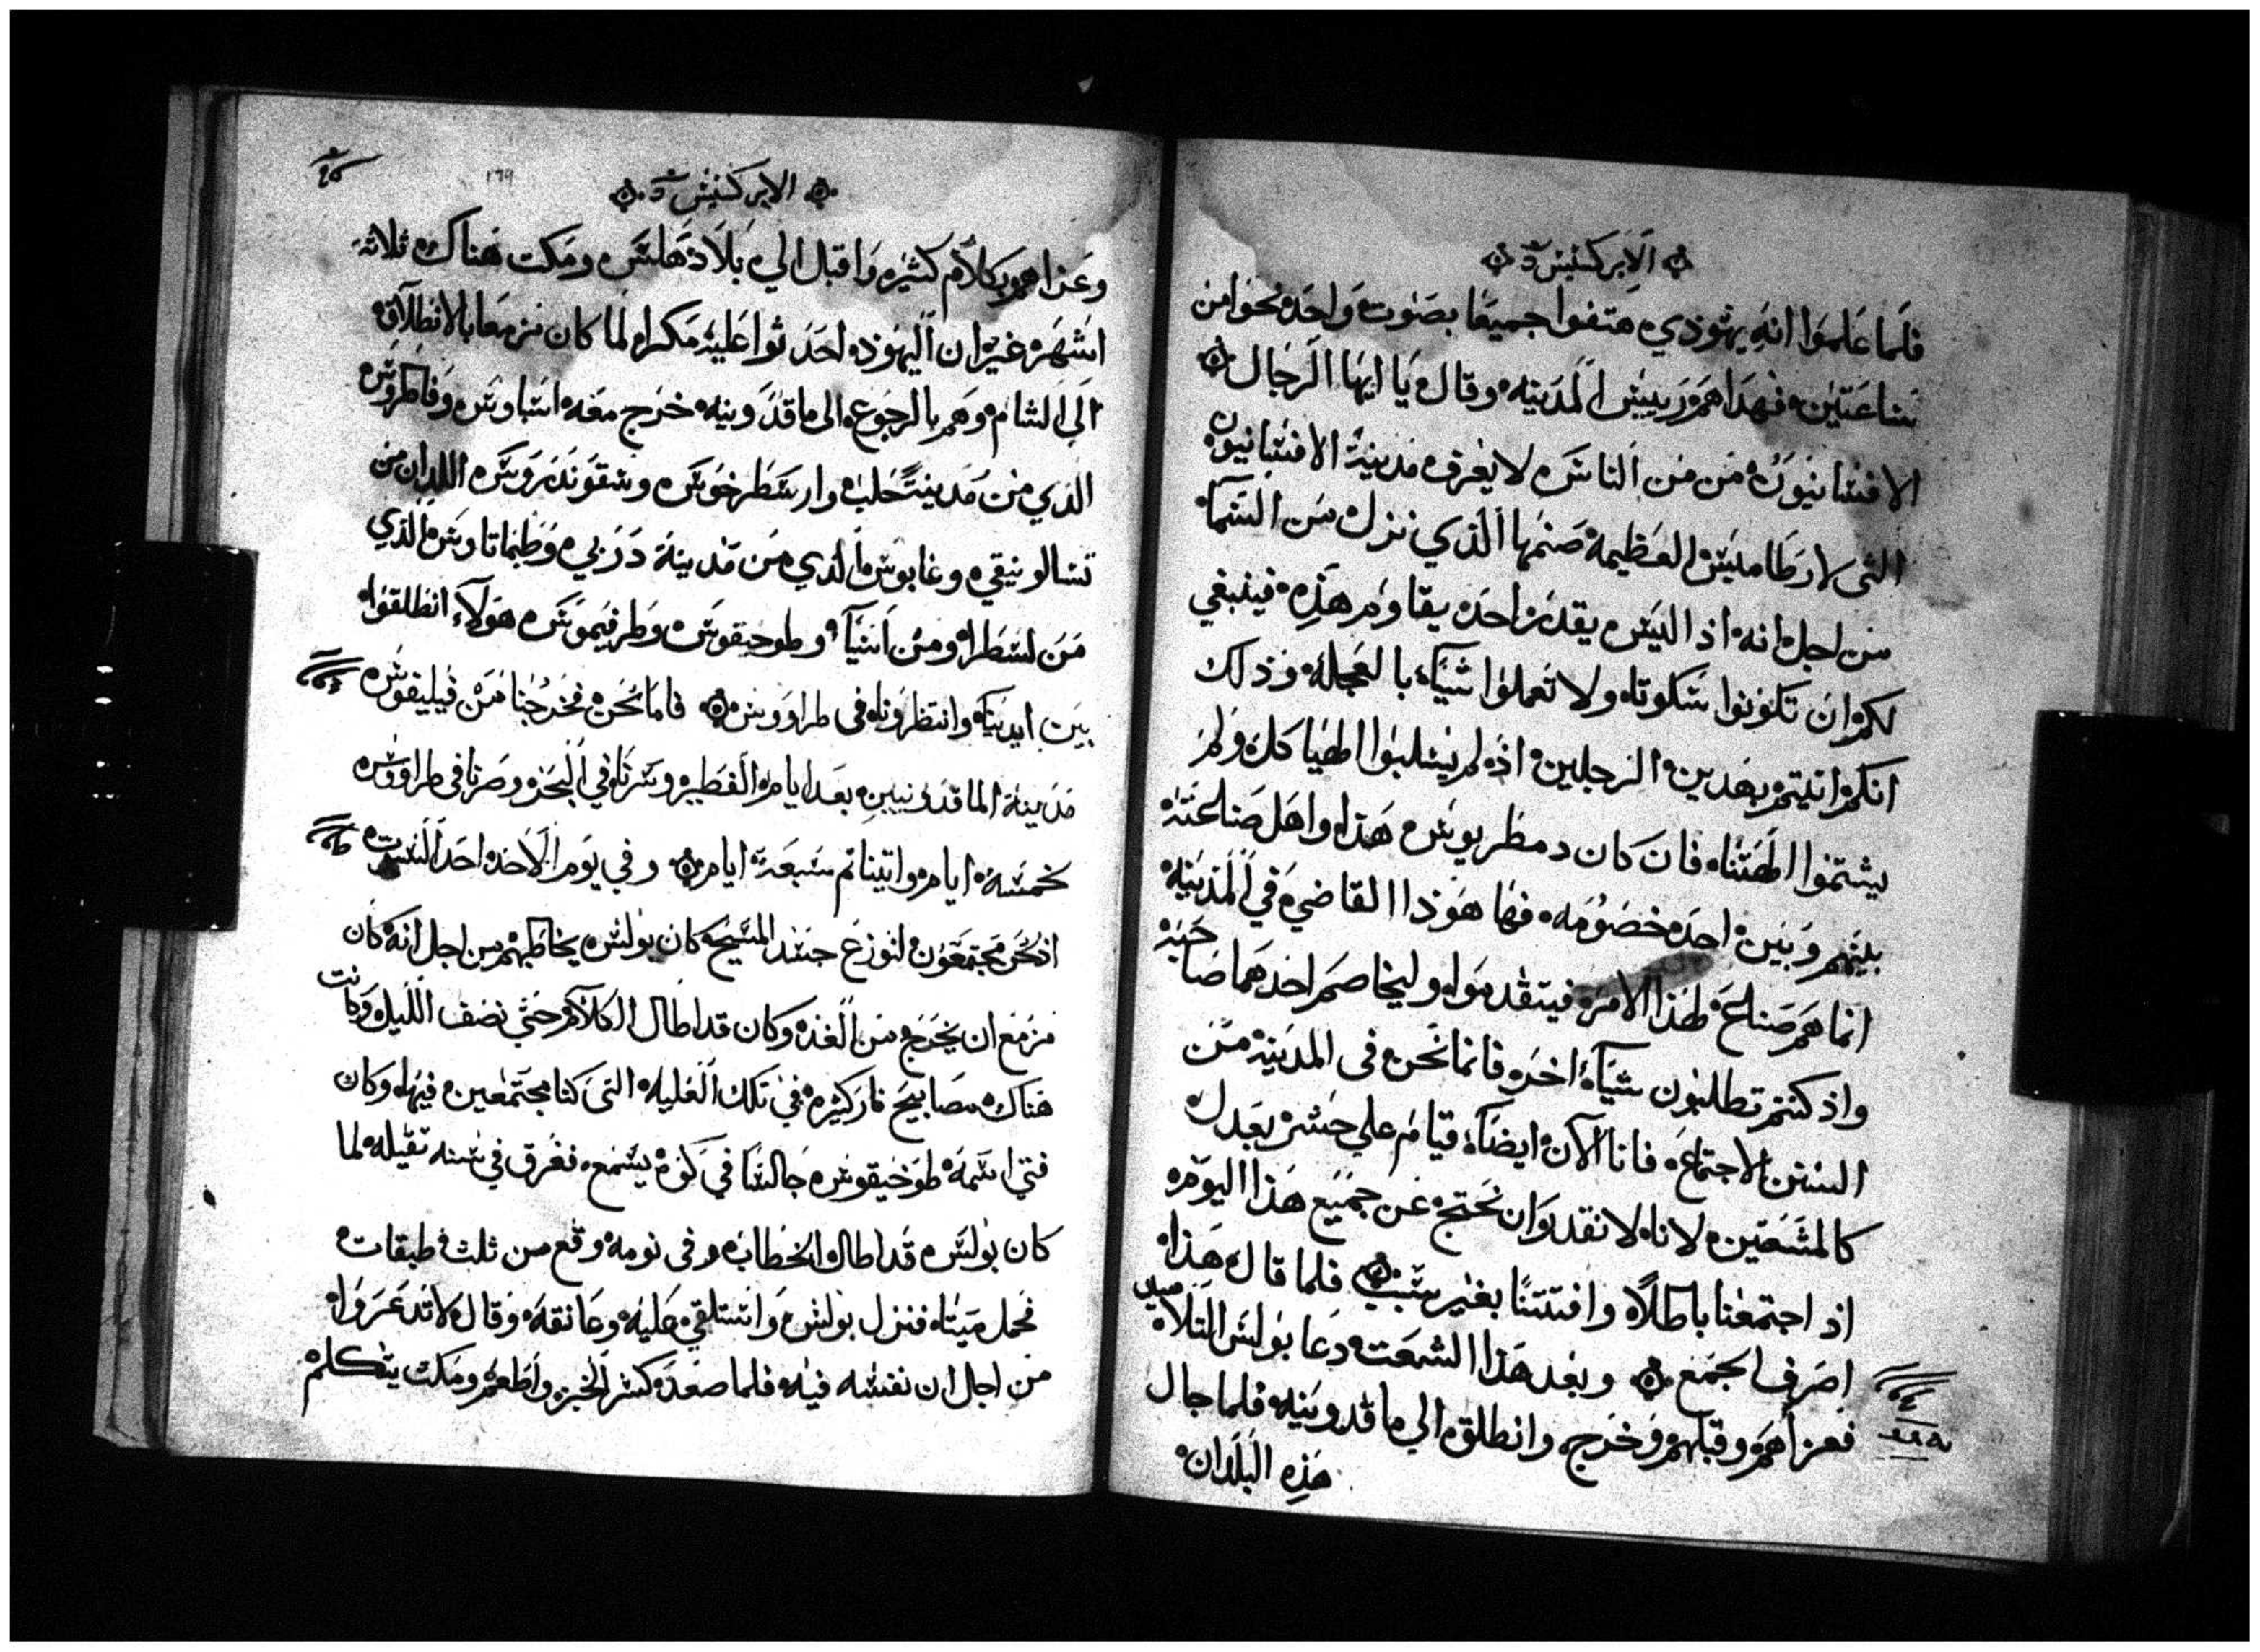 الابركسيس
فلما علموا انه يهوذي هتفوا جميعا بصوت واحد نحوا من
ساعتين فهداهم رييس المدينه وقال يا ايها الرجال
الافسانيون من من الناس لا يعرف مدينة الافسانيون
التى لارطاميس العظيمه صنمها الذي نزل من السما
من اجل انه اذ اليس يقدر احد يقاوم هذه فينبغي
لكم ان تكونوا سكوتا ولا تعملوا شيآ بالعجله وذلك
انكم اتيتم بهدين الرجلين اذ لم يسلبوا الهياكل ولم
يشتموا الهتنا فان كان دمطريوس هذا واهل صناعته
بينهم وبين احد خصومه فها هوذا القاضي في المدينه
انما هم صناع لهذا الامر فيتقدموا وليخاصم احدهما صاحبه
واذ كنتم تطلبون شيآ اخر فانما نحن فى المدينة من
السنن الاجتماع فانا الآن ايضآ قيام على خشر بعدل
كالمشعتين لانا لا نقدر ان نحتج عن جميع هذا اليوم
اذ اجتمعنا باطلاً وافتتنا بغير سبب فلما قال هذا
اصرف الجمع وبعد هذا الشعت دعا بولس التلاميد
فعزاهم وقبلهم وخرج وانطلق الي ماقدونيه فلما جال
هذه البلدان
١٦٩
الابركسيس
وعزاهم بكلام كثير واقبل الي بلاد هلس ومكت هناك ثلاثة
اشهر غير ان اليهود احدثوا عليه مكرا لما كان مزمعا بالانطلاق
الى الشام وهم بالرجوع الى ماقدونيه خرج معه اسباوس وفاطروس
الذي من مدينة حلب وارسطرخوس وسقوندروس اللدان من
تسالونيقي وغايوس الذي من مدينة دربي وطيماتاوس الذي
من لسطرا ومن اسيآ وطوخيقوس وطرفيموس هولآء انطلقوا
بين ايدينا وانتظرونا فى طراووس فاما نحن فخرجنا من فيليفوس
مدينة الماقدونيين بعد ايام الفطير وسرنا في البحر وصرنا في طراووس
لخمسة ايام واتينا تم سبعة ايام وفي يوم الاحد احد السبت
اذ نحن مجتمعون لنوزع جسد المسيح كان بولس يخاطبهم من اجل انه كان
مزمع ان يخرج من الغد وكان قد اطال الكلام حتى نصف الليل وكانت
هناك مصابيح نار كثيره في تلك العليه التى كنا مجتمعين فيها وكان
فتي اسمه طوخيقوس جالسا في كوة يسمع فغرق في سنه تقيله لما
كان بولس قد اطال الخطاب وفى نومه وقع من ثلث طبقات
فحمل ميتا فنزل بولس واستلقي عليه وعانقه وقال لا تدعروا
من اجل ان نفسه فيه فلما صعد كسر الخبز واطعم ومكت يتكلم